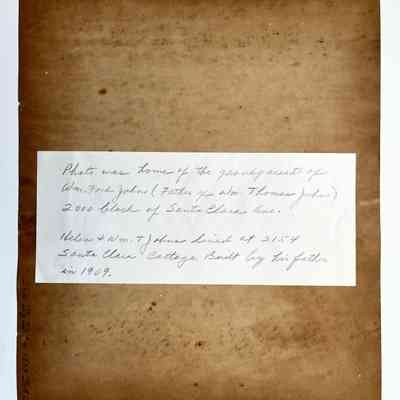 Photo was home of the grandparents of
Wm. Ford Johns (Father of Wm. Thomas Johns)
2000 block of Santa Clara Ave.
Helen & Wm. T Johns lived at 2154
Santa Clara Cottage Built by his father
in 1909.